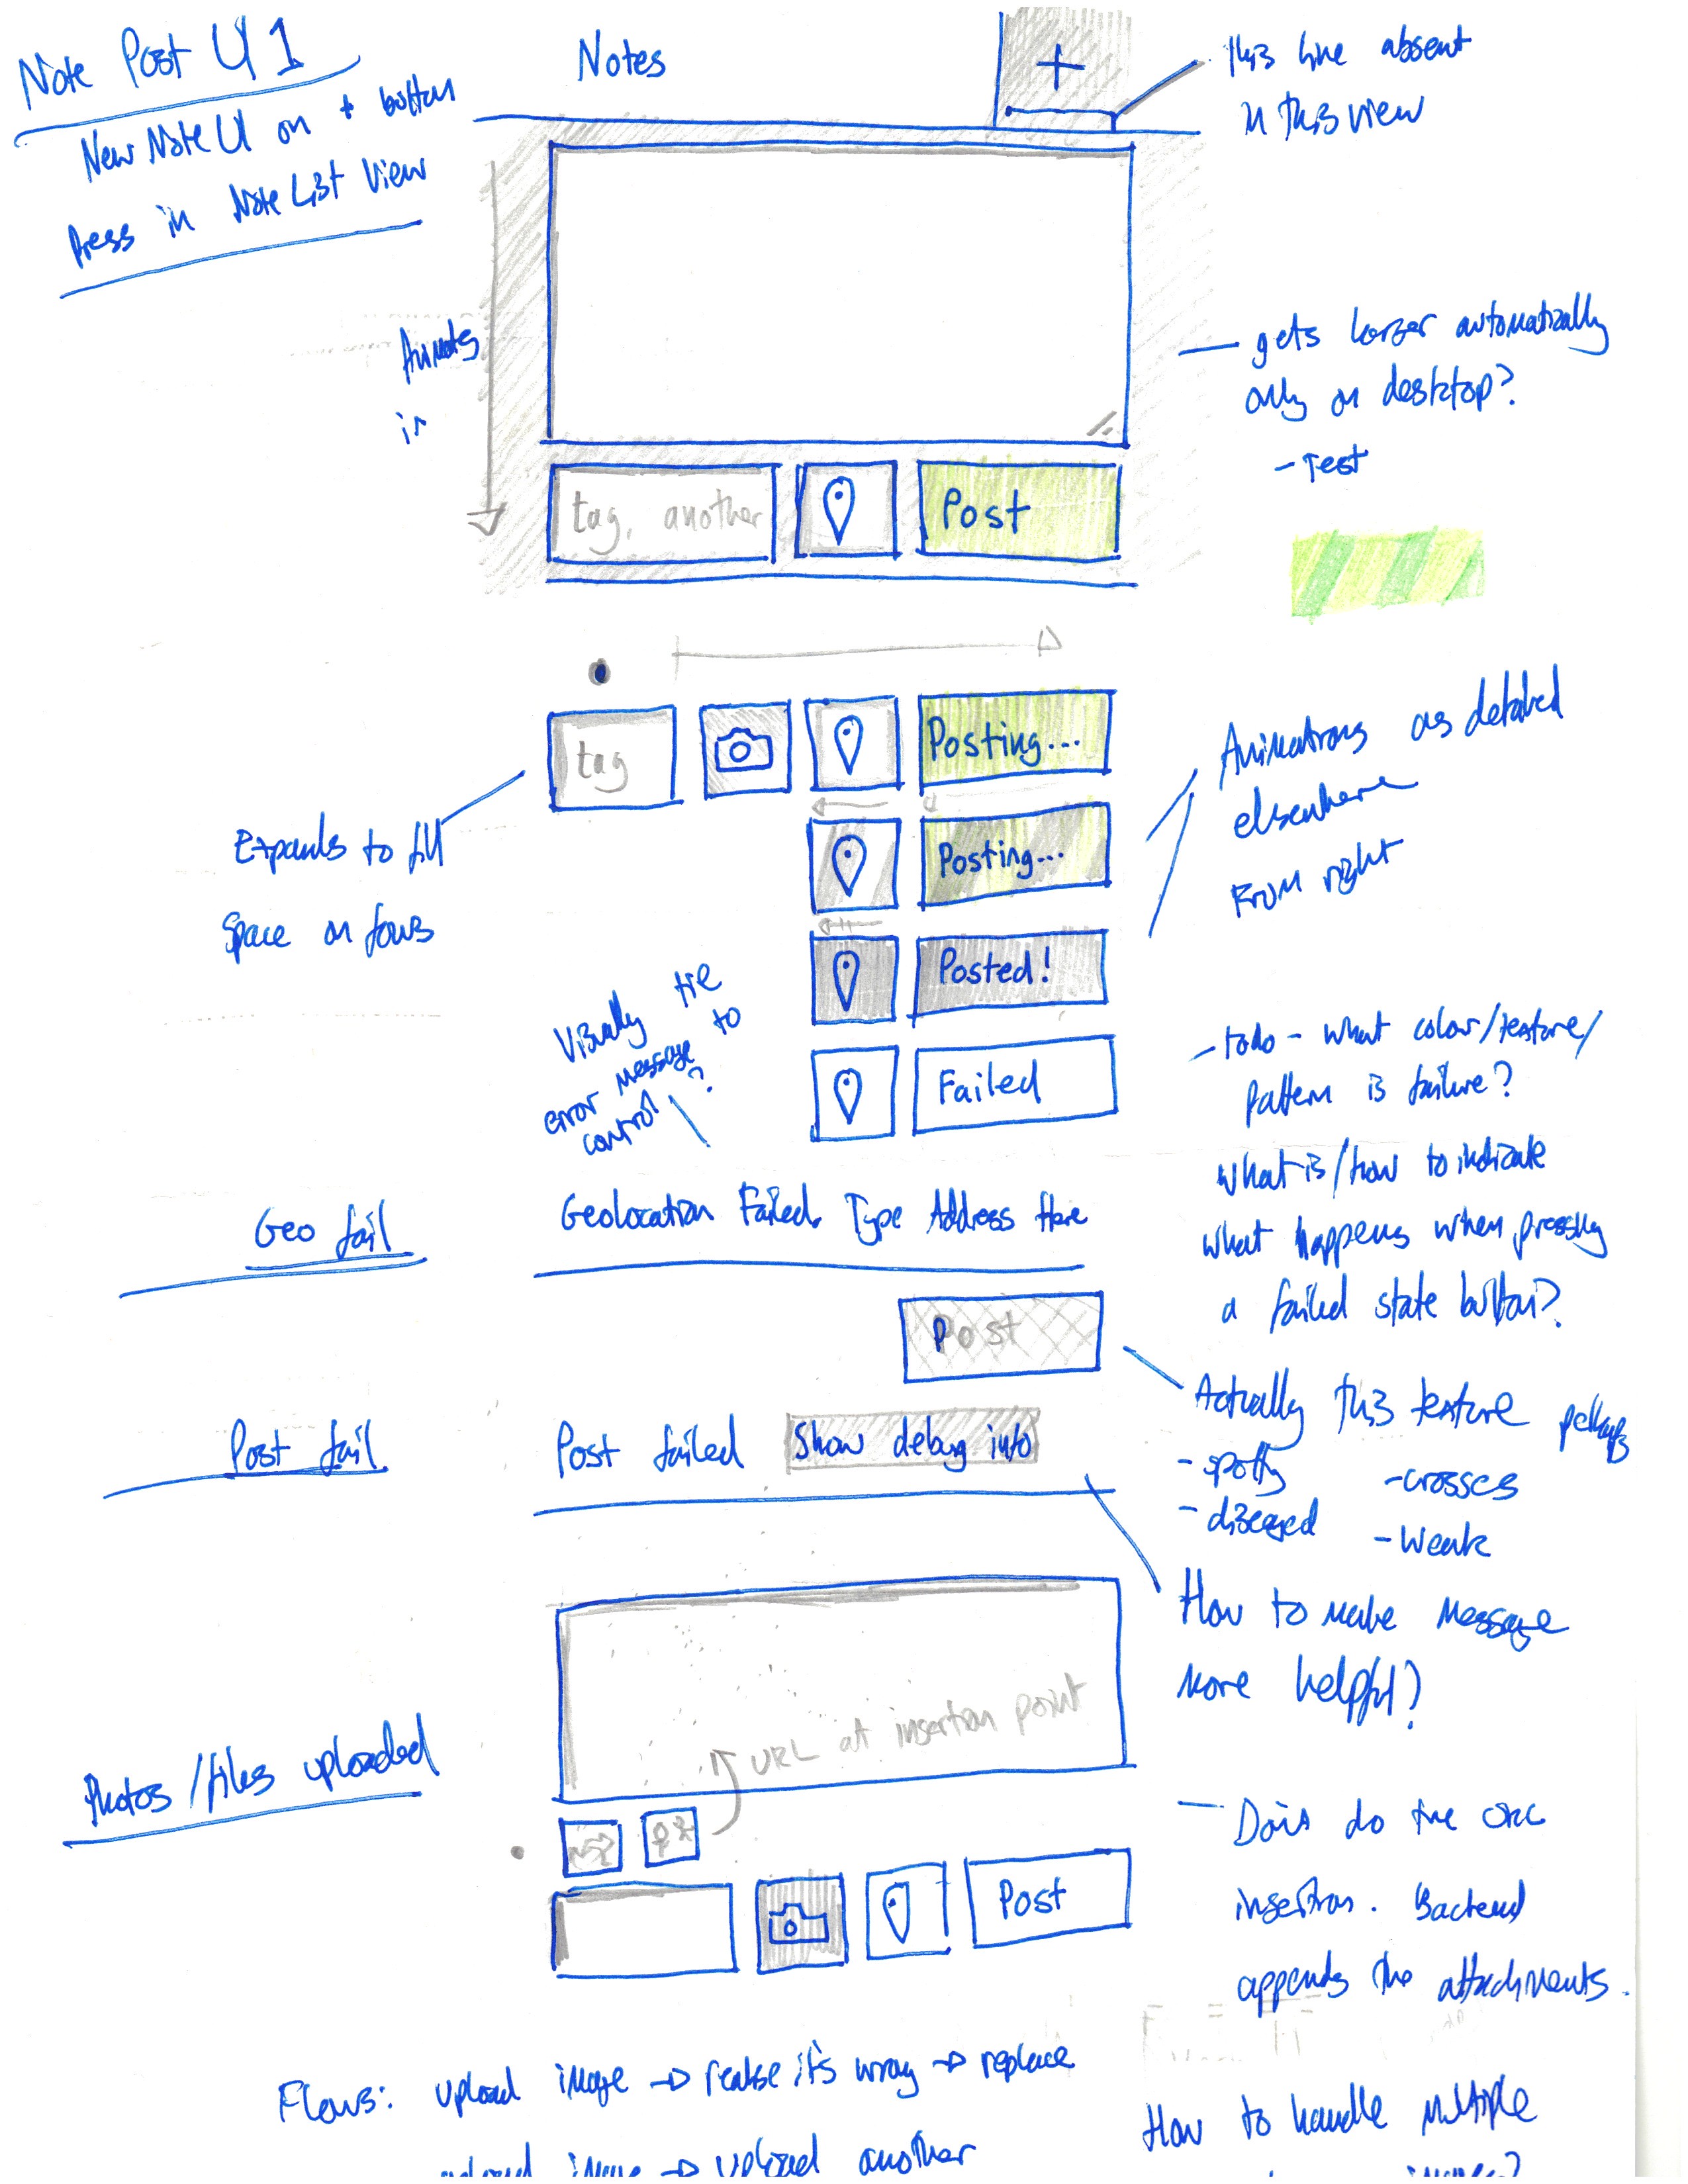 Note Post UI 1
New Note UI on + button
Press in Note List View
Notes
+
this line absent
in this view
Animates
in
gets larger automatically
only on desktop?
- Test
tag, another
Post
tag
Posting...
Posting...
Posted!
Failed
Expands to fill
space on focus
Animations as detailed
elsewhere
From right
Visually tie
error message to
control?
- todo - what color/texture/
pattern is failure?
what is/how to indicate
what happens when pressing
a failed state button?
Geo fail
Geolocation Failed. Type Address Here
Post
Actually this texture perhaps
- spotty
- crosses
- diseased
- weak
Post fail
Post failed
Show debug info
How to make message
more helpful?
URL at insertion point
Photos/files uploaded
Post
do the
insertion. Backend
appends the attachments.
Flows: upload image → realise it's wrong → replace
upload image → upload another
How to handle multiple
images?